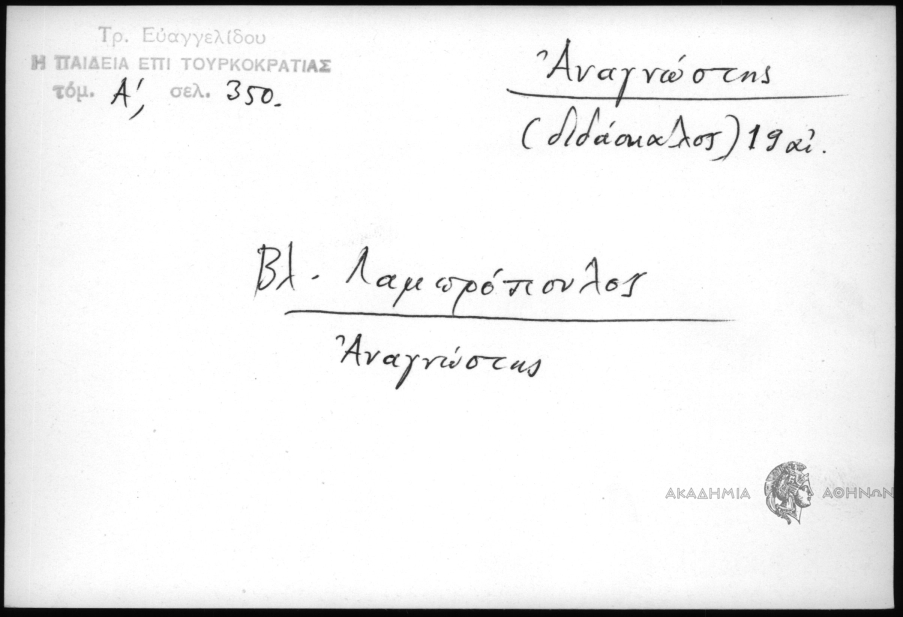 Τρ. Εὐαγγελίδου
Η ΠΑΙΔΕΙΑ ΕΠΙ ΤΟΥΡΚΟΚΡΑΤΙΑΣ
τόμ. Α΄, σελ. 350.
Ἀναγνώστης
(διδάσκαλος) 19 αἰ.
Βλ. Λαμπρόπουλος
Ἀναγνώστης
ΑΚΑΔΗΜΙΑ ΑΘΗΝΩΝ